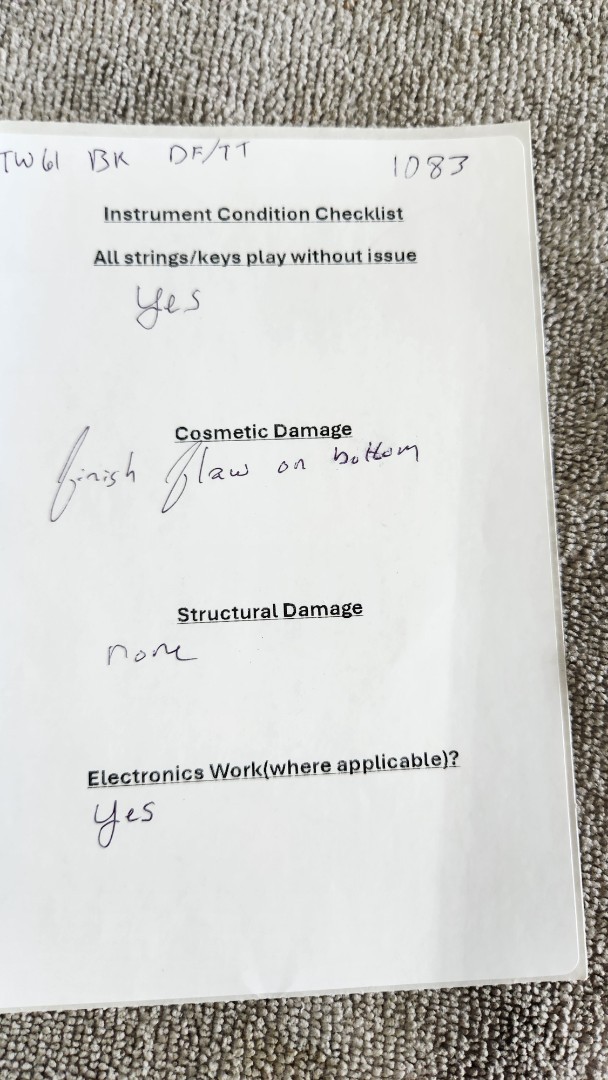 TW61 BK DF/TT 1083
Instrument Condition Checklist
All strings/keys play without issue
Yes
Cosmetic Damage
finish flaw on bottom
Structural Damage
none
Electronics Work(where applicable)?
Yes